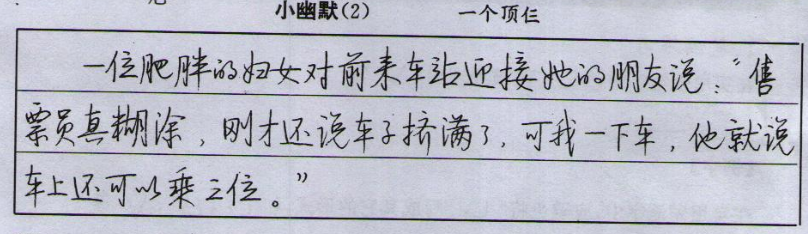 小幽默(2) 一个顶仨
一位肥胖的妇女对前来车站迎接她的朋友说：“售
票员真糊涂，刚才还说车子挤满了，可我一下车，他就说
车上还可以乘三位。”